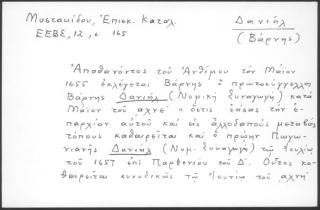 Μυστακίδου, Ἐπισκ. Κατάλ.
ΕΕΒΣ, 12, σ 165
Δανιήλ
(Βάρνης)
Ἀποθανόντος τοῦ Ἀνθίμου τὸν Μάϊον
1655 ἐκλέγεται Βάρνης ὁ πρωτοσύγγελλος
Βάρνης Δανιήλ (Νομικὴ Συναγωγή) κατὰ
Μάϊον τοῦ αχνε' ὅστις ἐάσας τὴν ἐ-
παρχίαν αὐτοῦ καὶ εἰς ἀλλοδαποὺς μεταβὰς
τόπους καθαιρεῖται καὶ ὁ πρώην Πωγω-
νιανῆς Δανιήλ (Νομ. Συναγωγή) τῷ Ἰουνίῳ
τοῦ 1657 ἐπὶ Παρθενίου τοῦ Δ'. Οὗτος κα-
θαιρεῖται συνοδικῶς τῷ Ἰουνίῳ τοῦ αχνη'